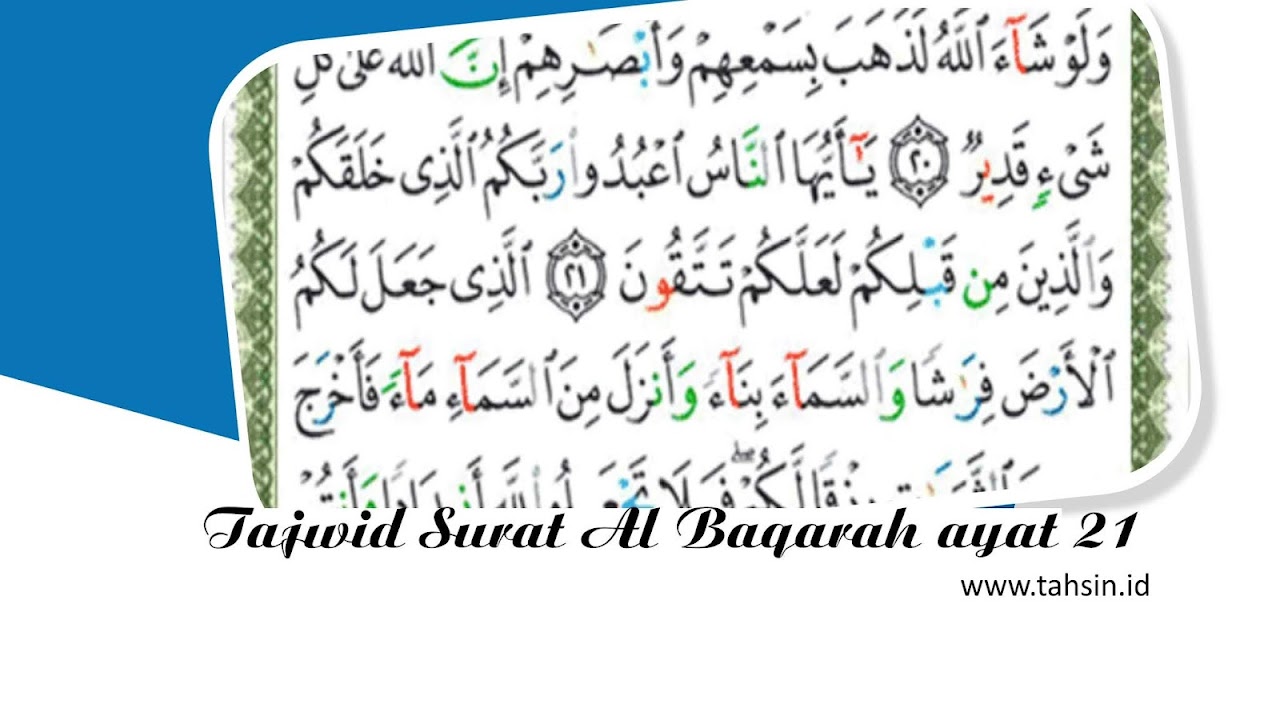 وَلَوْ شَآءَ ٱللَّهُ لَذَهَبَ بِسَمْعِهِمْ وَأَبْصَـٰرِهِمْ إِنَّ ٱللَّهَ عَلَىٰ كُلِّ
شَىْءٍ قَدِيرٌ ٢٠ يَـٰٓأَيُّهَا ٱلنَّاسُ ٱعْبُدُوا۟ رَبَّكُمُ ٱلَّذِى خَلَقَكُمْ
وَٱلَّذِينَ مِن قَبْلِكُمْ لَعَلَّكُمْ تَتَّقُونَ ٢١ ٱلَّذِى جَعَلَ لَكُمُ
ٱلْأَرْضَ فِرَٰشًا وَٱلسَّمَآءَ بِنَآءً وَأَنزَلَ مِنَ ٱلسَّمَآءِ مَآءً فَأَخْرَجَ
رِزْقًا لَّكُمْ فَلَا تَجْعَلُوا۟ لِلَّهِ أَندَادًا وَأَنتُمْ
Tajwid Surat Al Baqarah ayat 21
www.tahsin.id